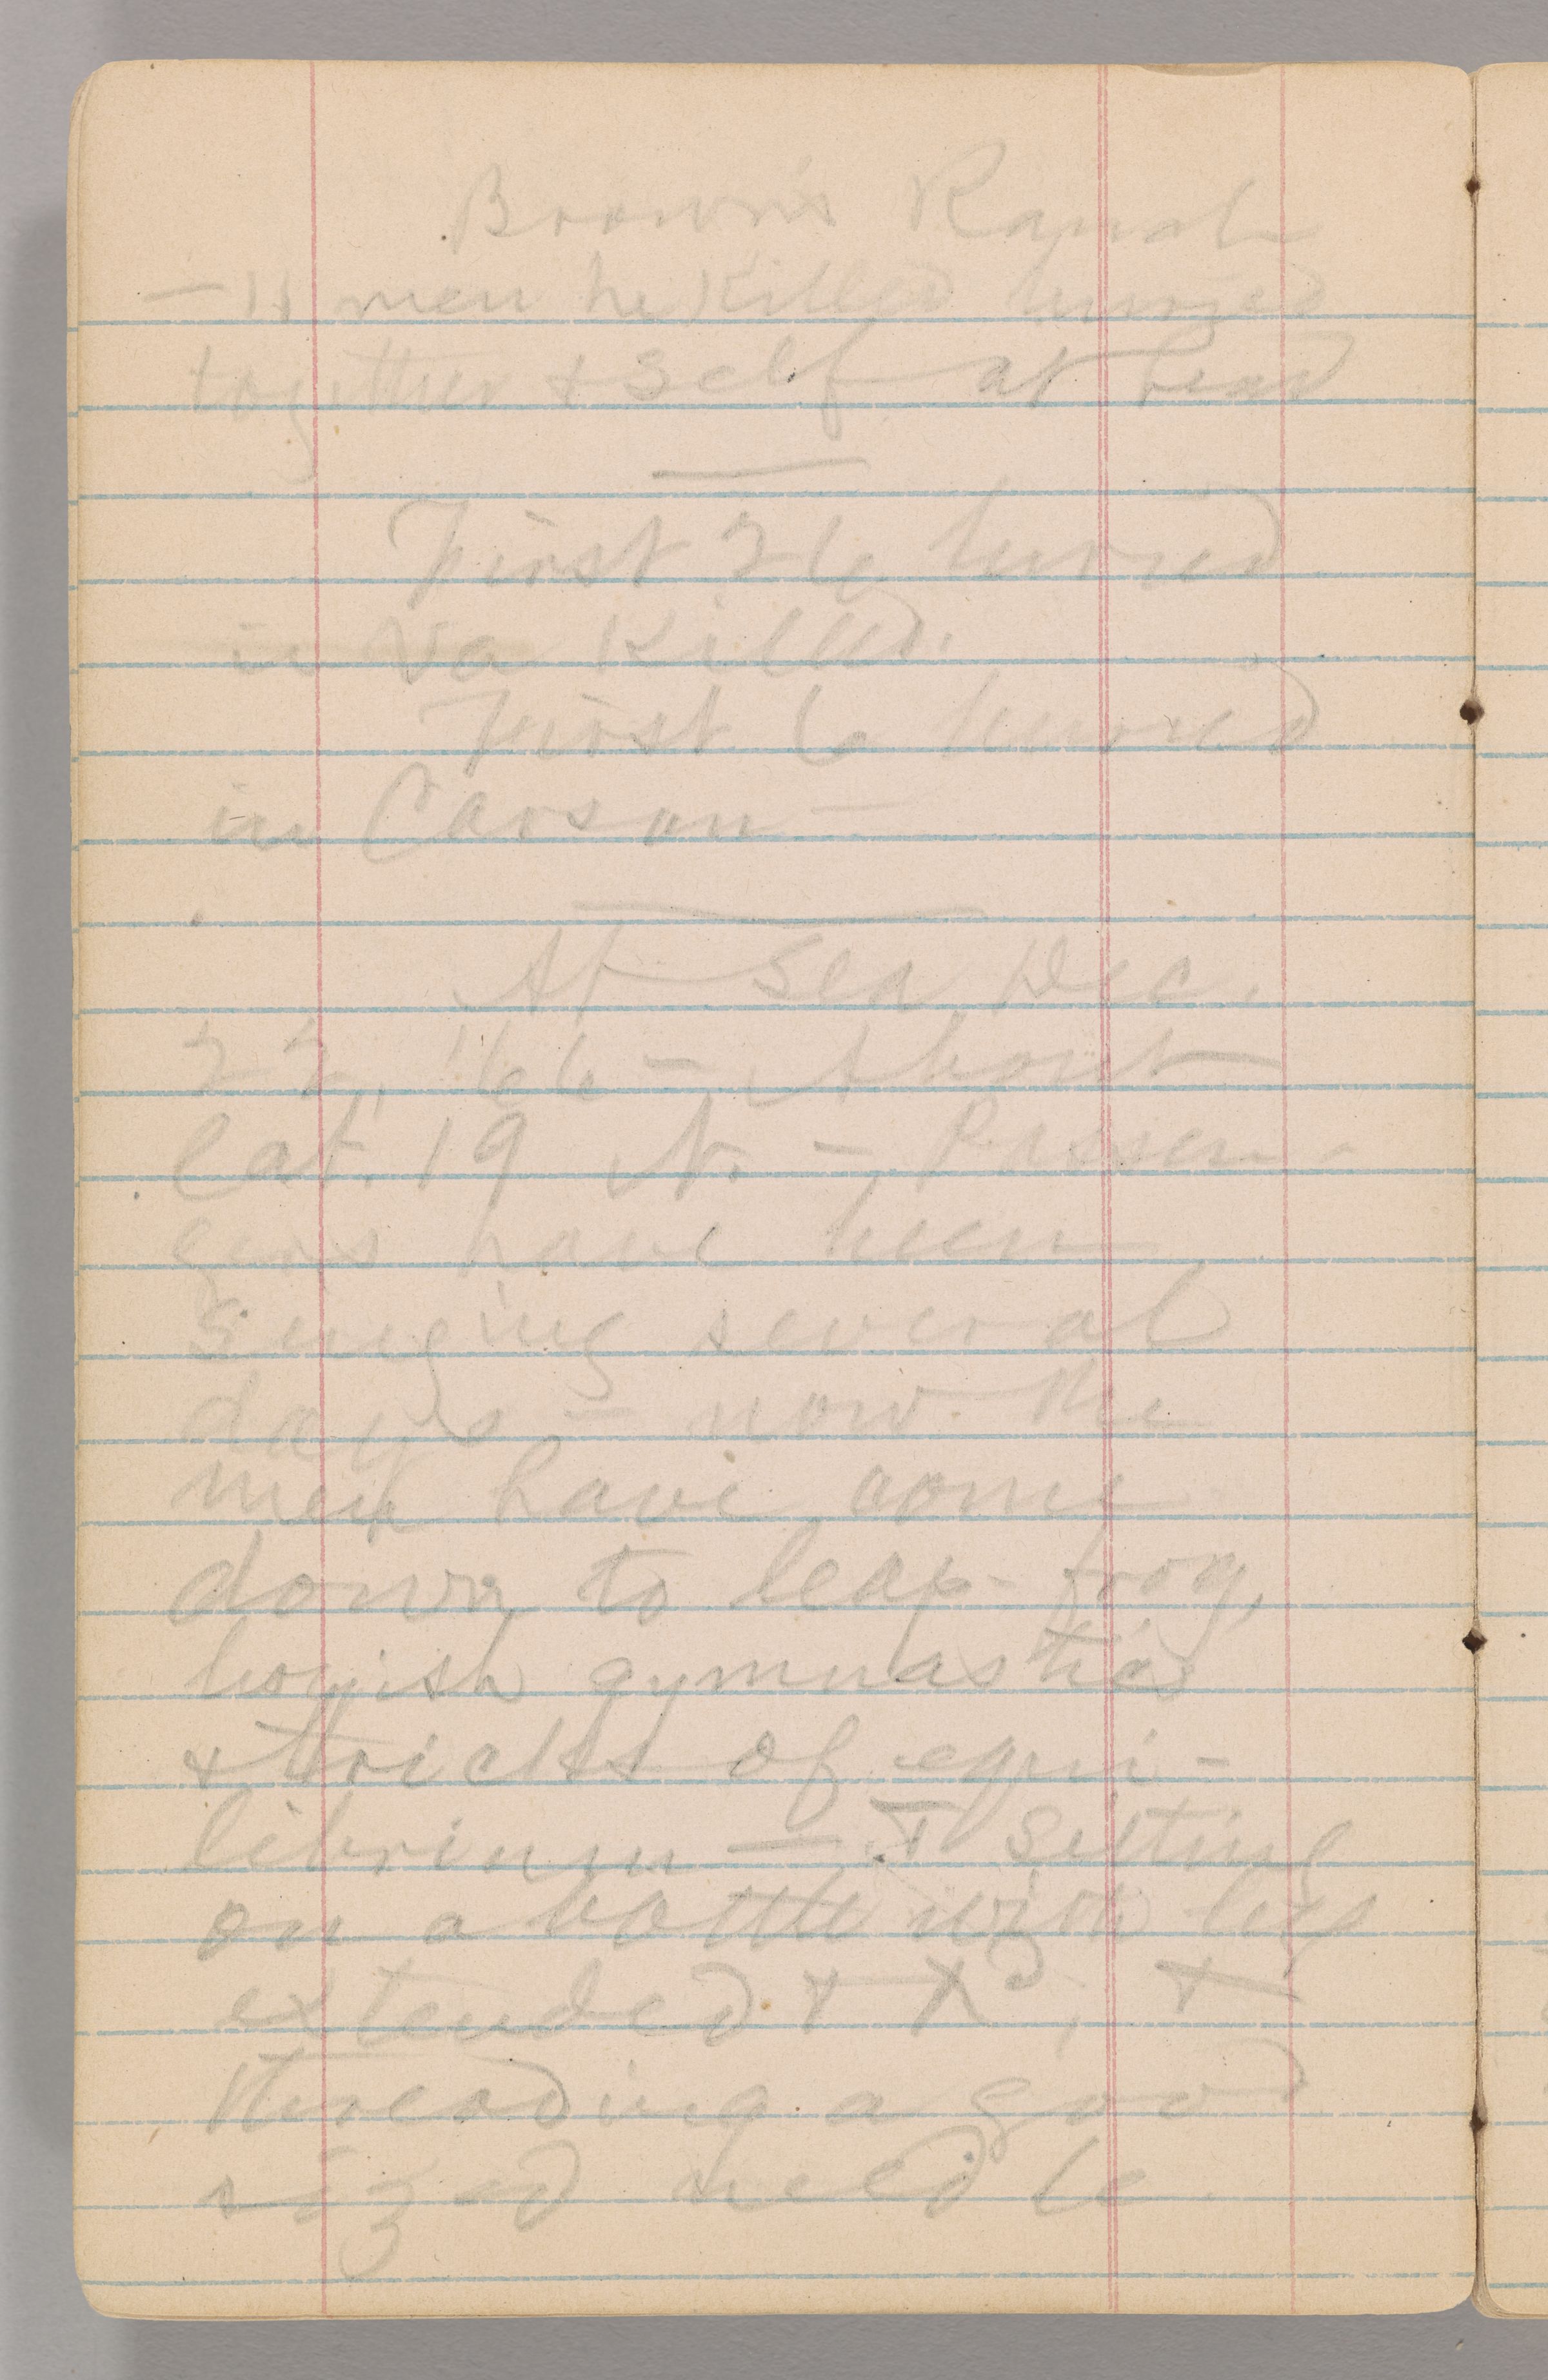 Brown's Ranch
— 11 men he killed buried
together & self at head
First 26 buried
in Va killed.
First 6 buried
in Carson —
At Sea Dec.
22, '66 — About
lat. 19 N. — Passen-
gers have been
singing several
days — now the
men have come
down to leap-frog,
boyish gymnastics
& tricks of equi-
librium — I sitting
on a bottle with legs
extended & Xd, &
threading a good
sized needle.